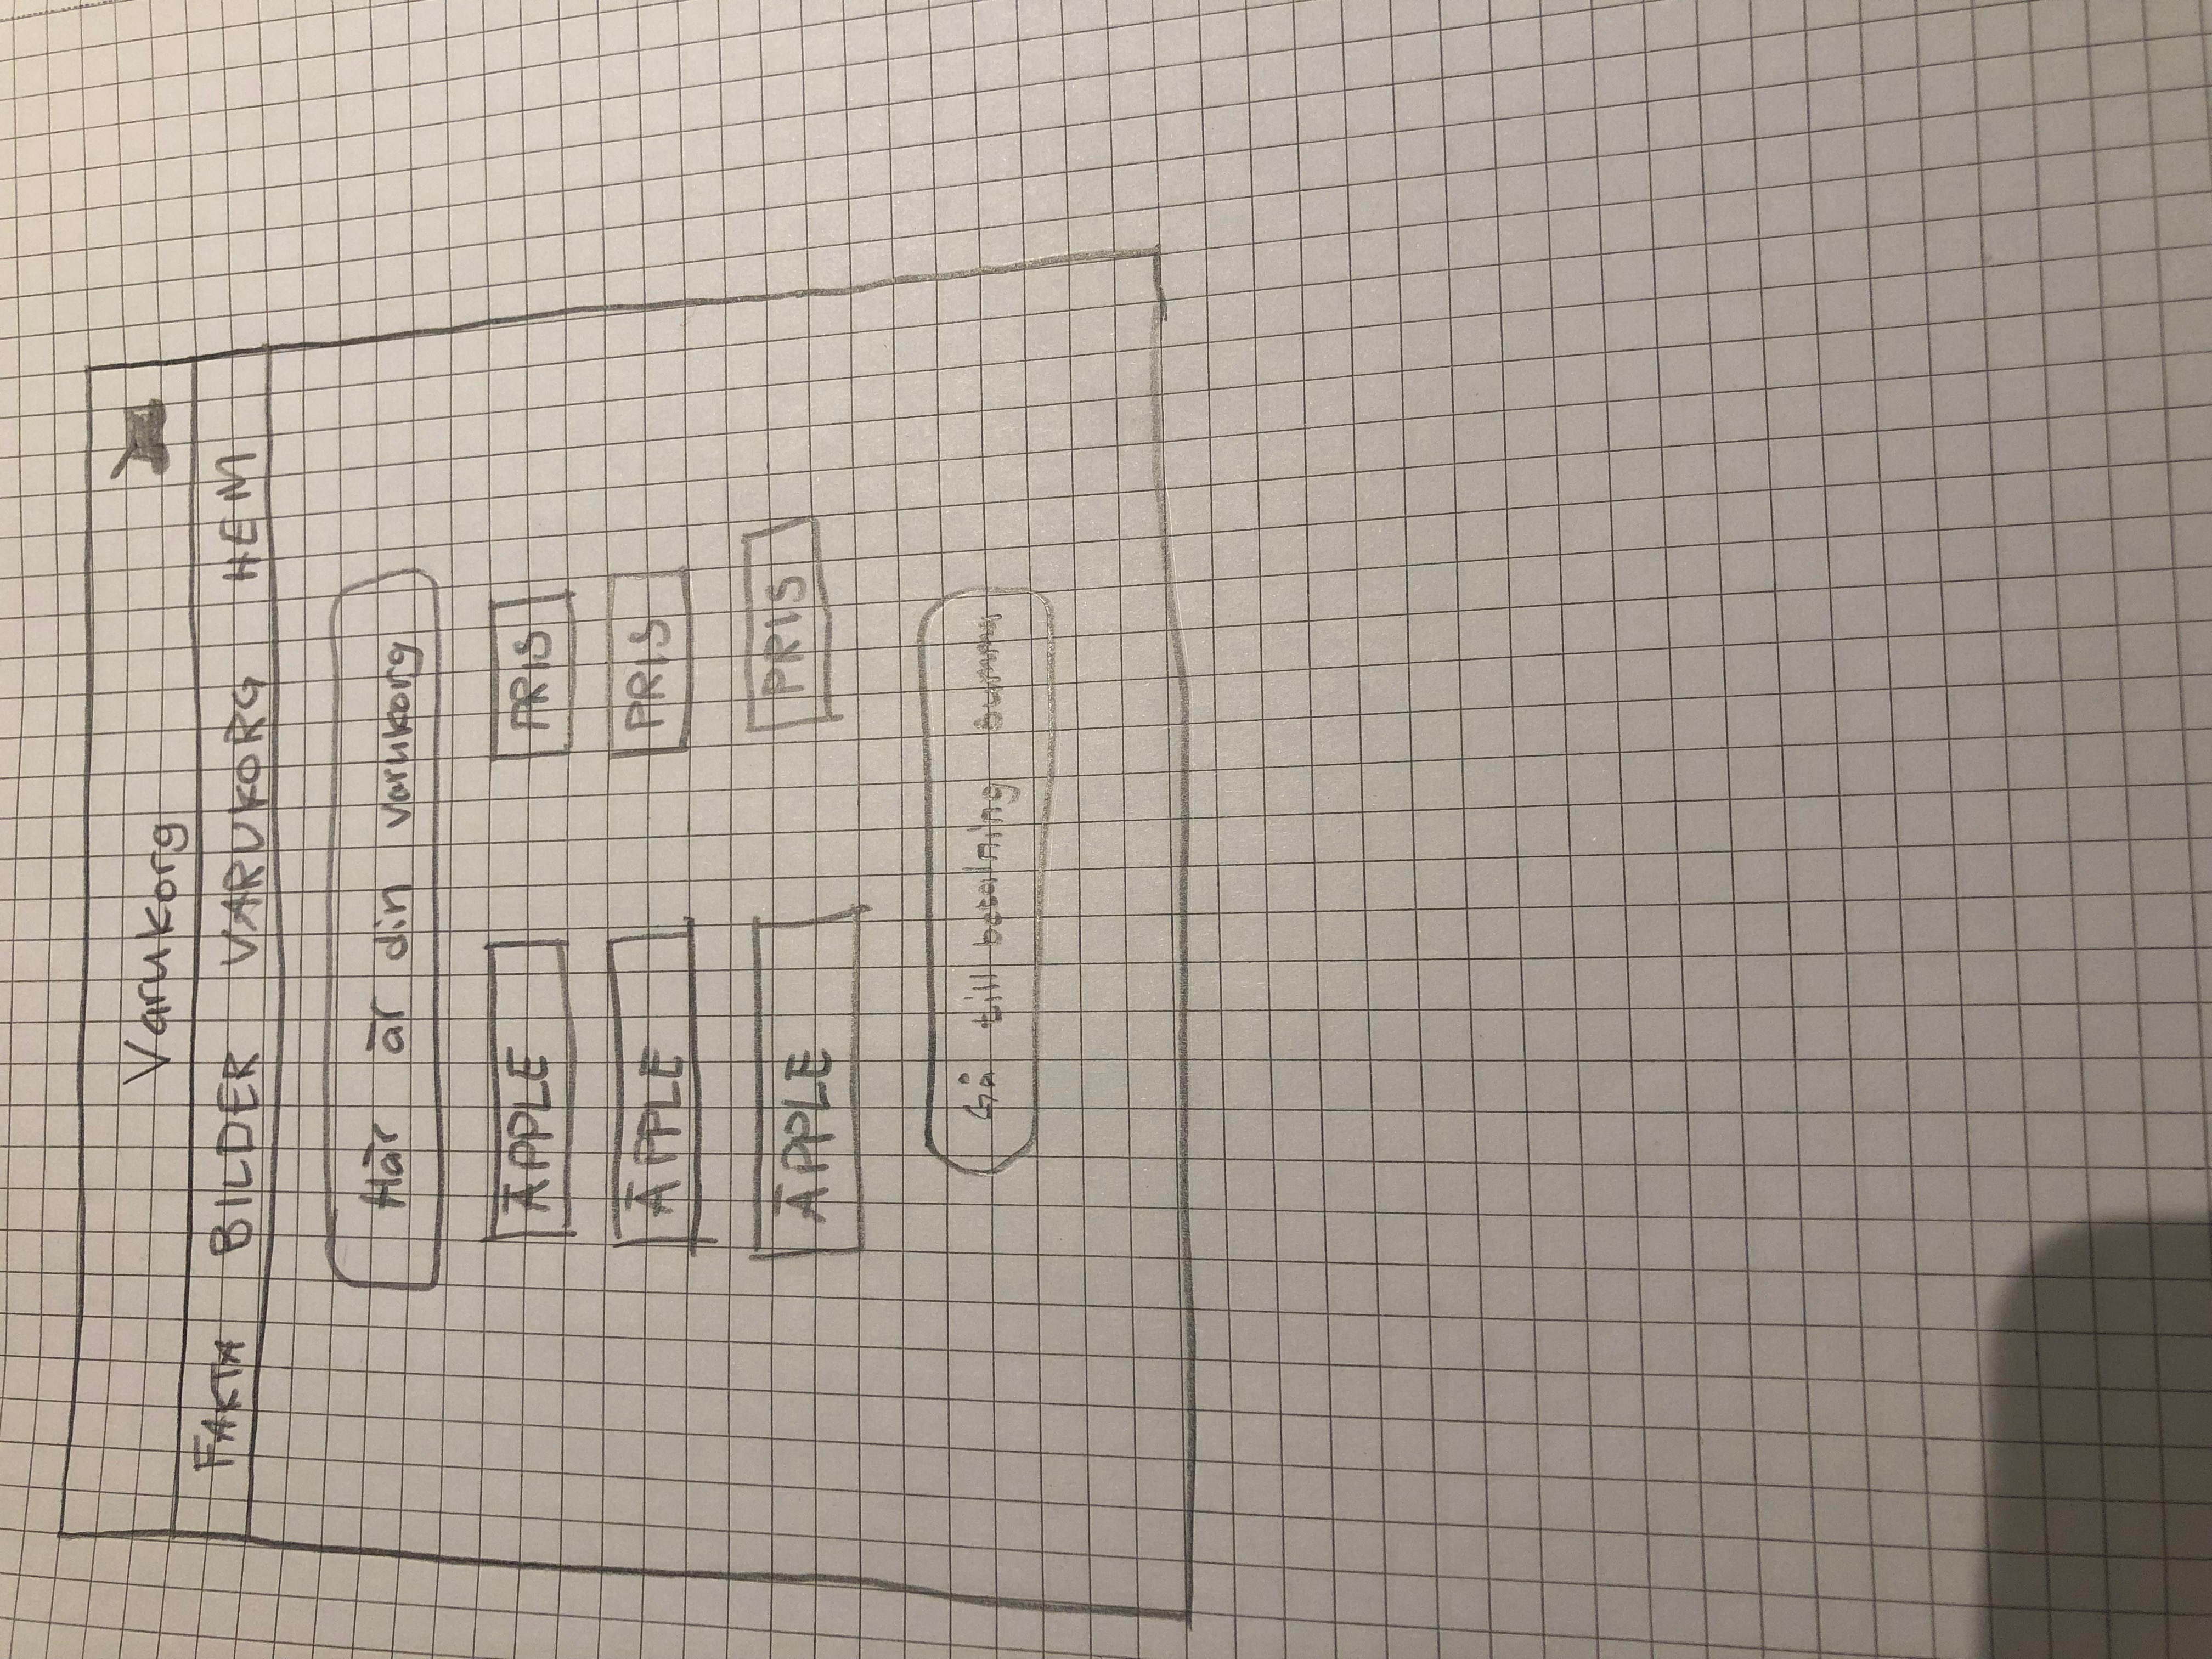 Varukorg
FAKTA BILDER VARUKORG HEM
Här är din varukorg
ÄPPLE PRIS
ÄPPLE PRIS
ÄPPLE PRIS
Gå till betalning summa